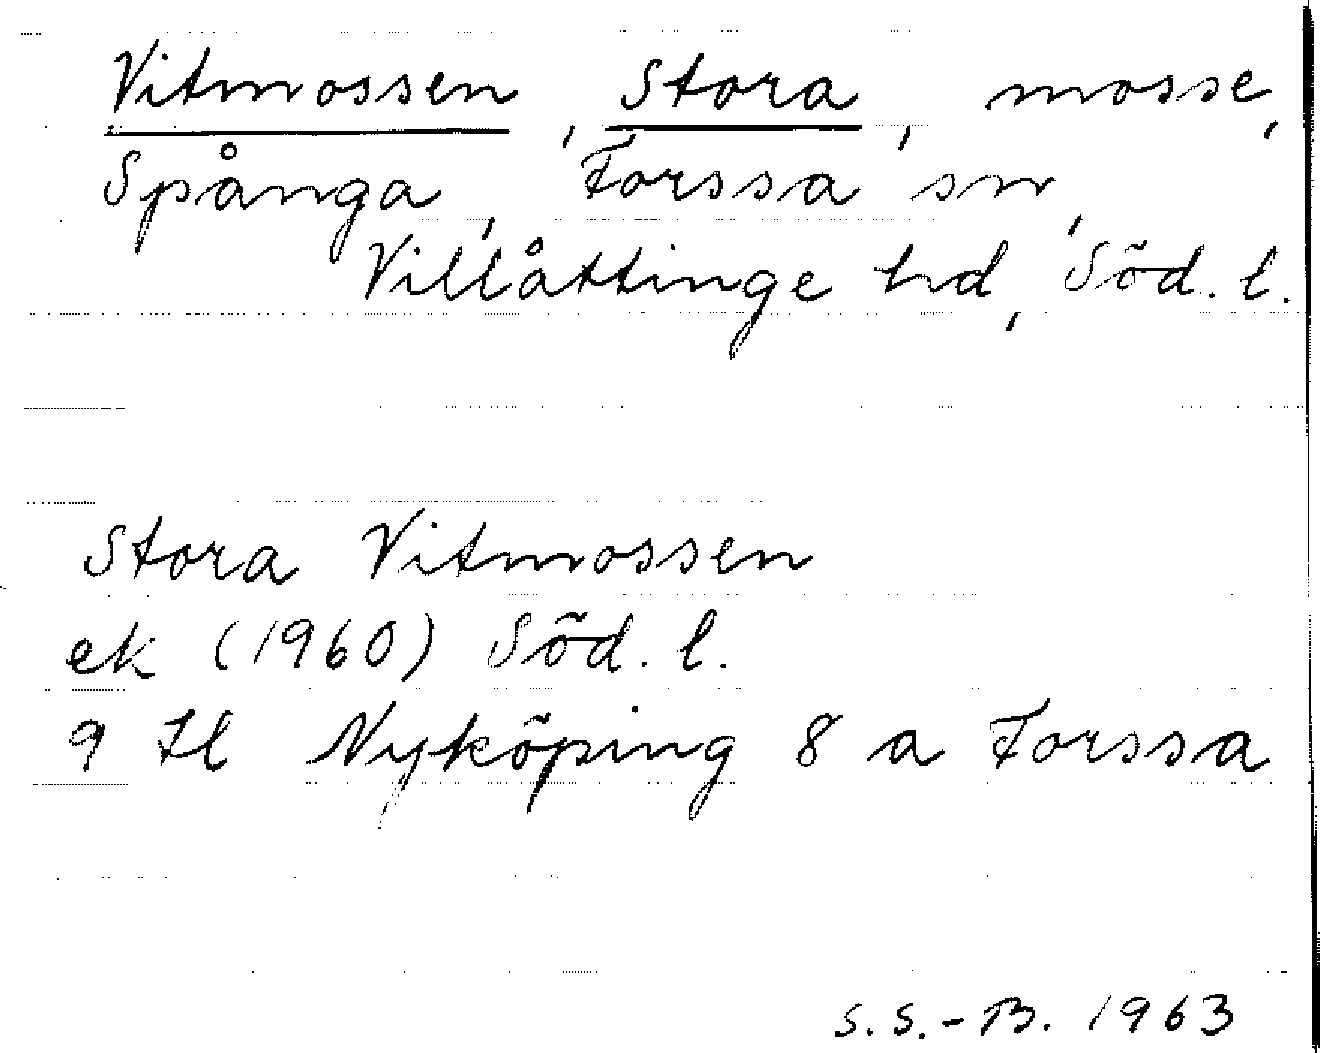 Vitmossen, Stora, mosse,
Spånga, Forssa sn,
Villåttinge hd, Söd. l.
Stora Vitmossen
ek (1960) Söd. l.
9 H Nyköping 8 a Forssa
S.S.-B. 1963